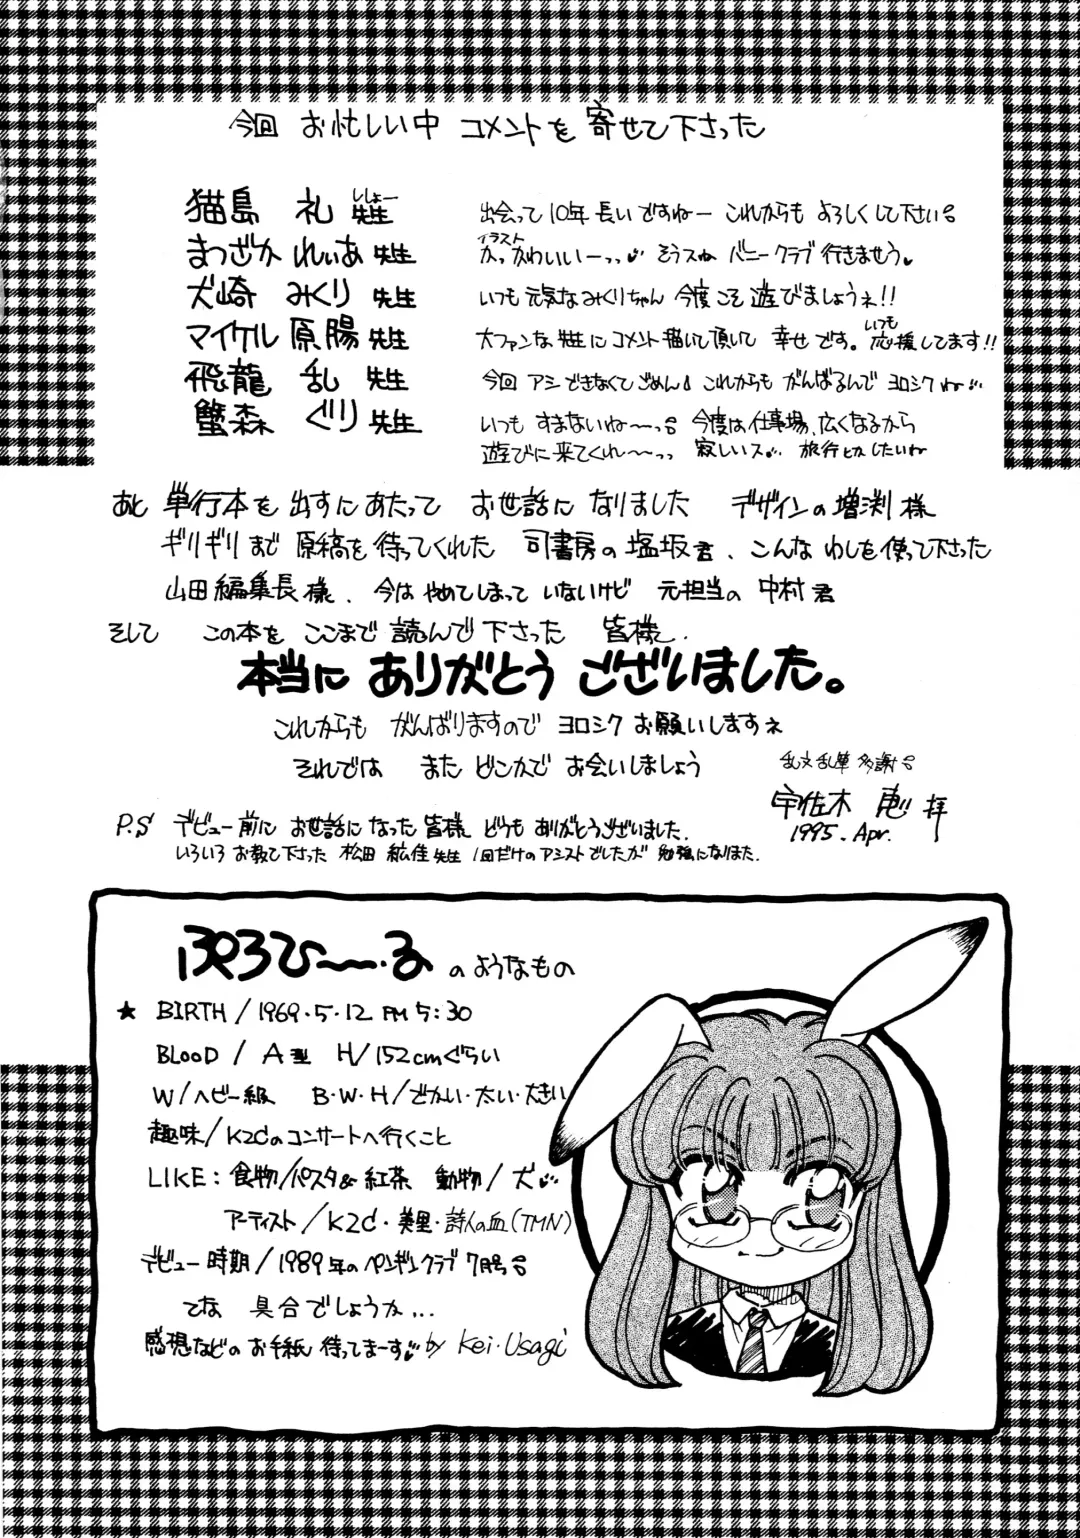 今回 お忙しい中 コメントを 寄せて下さった
猫島 礼 先生 ししょー
出会って 10年 長いですねー これからも よろしくして下さい
まつざか れいあ 先生
イラスト かっかわいいーっっ♥ そうスね バニークラブ 行きませう♥
犬崎 みくり 先生
いつも 元気な みくりちゃん 今度こそ 遊びましょうネ!!
マイケル 原腸 先生
大ファンな 先生に コメント描いて頂いて 幸せです。いつも 応援してます!!
飛龍 乱 先生
今回 アシできなくてごめん これからも がんばるんで ヨロシクね♥
蟹森 ぐり 先生
いつも すまないね〜っ 今度は 仕事場、広くなるから
遊びに来てくれ〜っっ 寂しいス 旅行とかしたいね
あと 単行本を 出すにあたって お世話に なりました デザインの 増渕 様
ギリギリまで 原稿を 待ってくれた 司書房の 塩坂君、こんな わしを使って下さった
山田 編集長様、今は やめてしまって いないけど 元担当の 中村君
そして この本を ここまで 読んで下さった 皆様
本当に ありがとう ございました。
これからも がんばりますので ヨロシク お願いしますネ
それでは また どこかで お会いしましょう
乱文乱筆 多謝
宇佐木 恵 拝
1995. Apr.
P.S デビュー前に お世話になった 皆様 どうも ありがとうございました.
いろいろ お教え下さった 松田 紘佳 先生 1回だけのアシストでしたが 勉強になりました.
ぷろひ〜・る のようなもの
★ BIRTH / 1969・5・12 PM 5:30
BLOOD / A型 H/152cmぐらい
W/ヘビー級 B・W・H/でかい・太い・大きい
趣味/K2Cのコンサートへ行くこと
LIKE: 食物/パスタ& 紅茶 動物/犬♥
アーティスト/K2C・美里・詩人の血(TMN)
デビュー時期/1989年の ペンギンクラブ 7月号
てな 具合でしょうか...
感想などの お手紙 待ってまーす♥ by Kei・Usagi